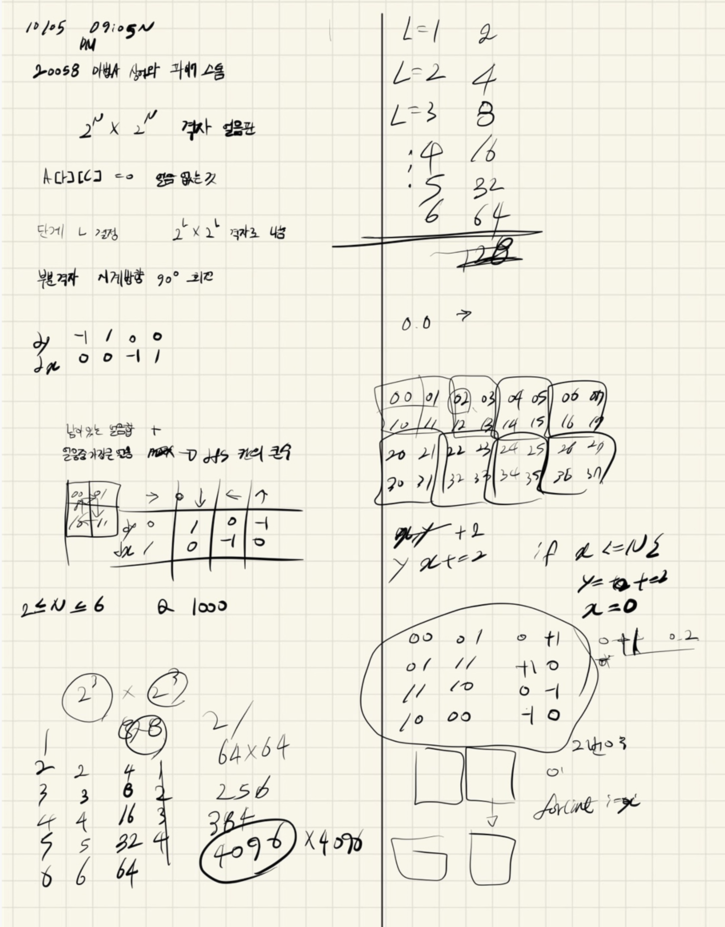 10/05 09:05
AM
20058 마법사 상어와 파이어스톰
2^N x 2^N 격자 얼음판
A[r][c] = 0 얼음 없는 것
단계 L 결정 2^L x 2^L 격자로 나눔
부분격자 시계방향 90° 회전
dy -1 1 0 0
dx 0 0 -1 1
남아있는 얼음합 +
dfs 칸의 큰수
00 01
10 11
→ ↓ ← ↑
dy 0 1 0 -1
dx 1 0 -1 0
2 ≤ N ≤ 6 Q 1000
2^3 x 2^3
8 8
1
2 2 4 1
3 3 8 2
4 4 16 3
5 5 32 4
6 6 64
2
64x64
256
384
4096 x 4096
L=1 2
L=2 4
L=3 8
: 4 16
: 5 32
6 64
128
0.0 →
00 01 02 03 04 05 06 07
10 11 12 13 14 15 16 17
20 21 22 23 24 25 26 27
30 31 32 33 34 35 36 37
+2
y x+=2
if x <=N {
y= +=2
x=0
00 01 0 +1
01 11 +1 0
11 10 0 -1
10 00 -1 0
0 +1 0.2
2번 03
01
for(int i=x